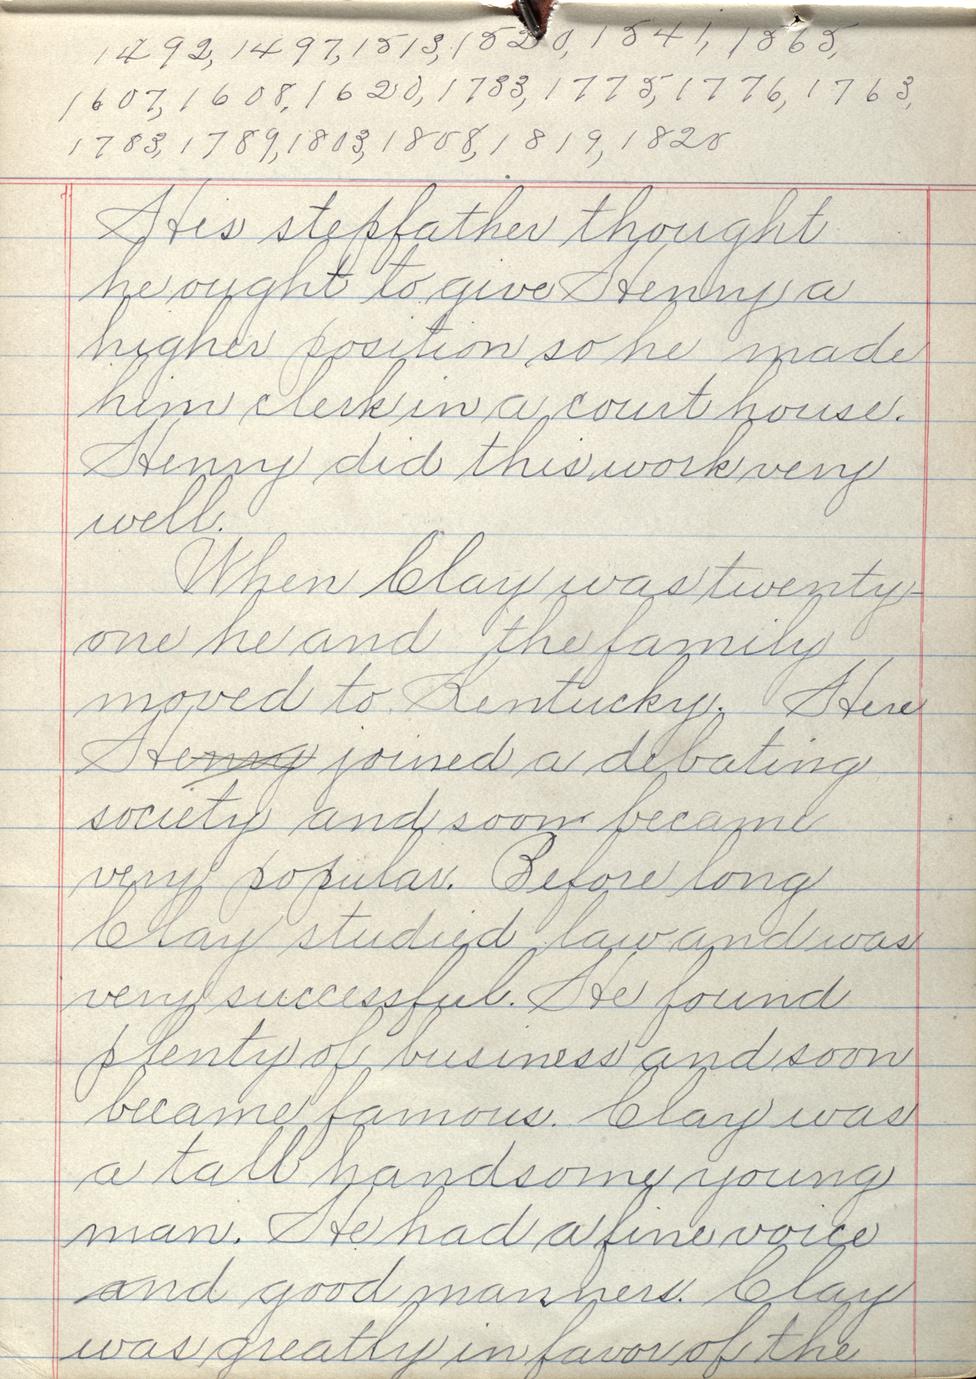 1492, 1497, 1513, 1520, 1541, 1565,
1607, 1608, 1620, 1733, 1775, 1776, 1763,
1783, 1789, 1803, 1808, 1819, 1820
His stepfather thought
he ought to give Henny a
higher position so he made
him clerk in a court house.
Henny did this work very
well.
When Clay was twenty-
one he and the family
moved to Kentucky. Here
Henny joined a debating
society and soon became
very popular. Before long
Clay studied law and was
very successful. He found
plenty of business and soon
became famous. Clay was
a tall handsome young
man. He had a fine voice
and good manners. Clay
was greatly in favor of the